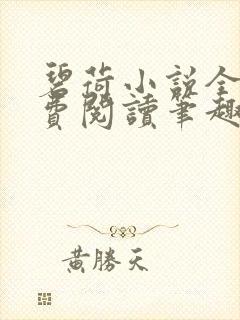 碧荷小説全
費閱讀筆趣
黃勝天